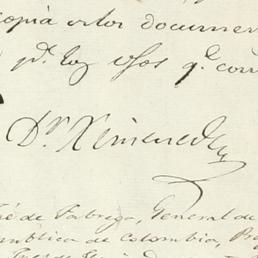 copia estos documen
pª. los usos qᵉ. con
Dʳ Ximenez
sé de Fabrega, General de
epublica de Colombia, Pr